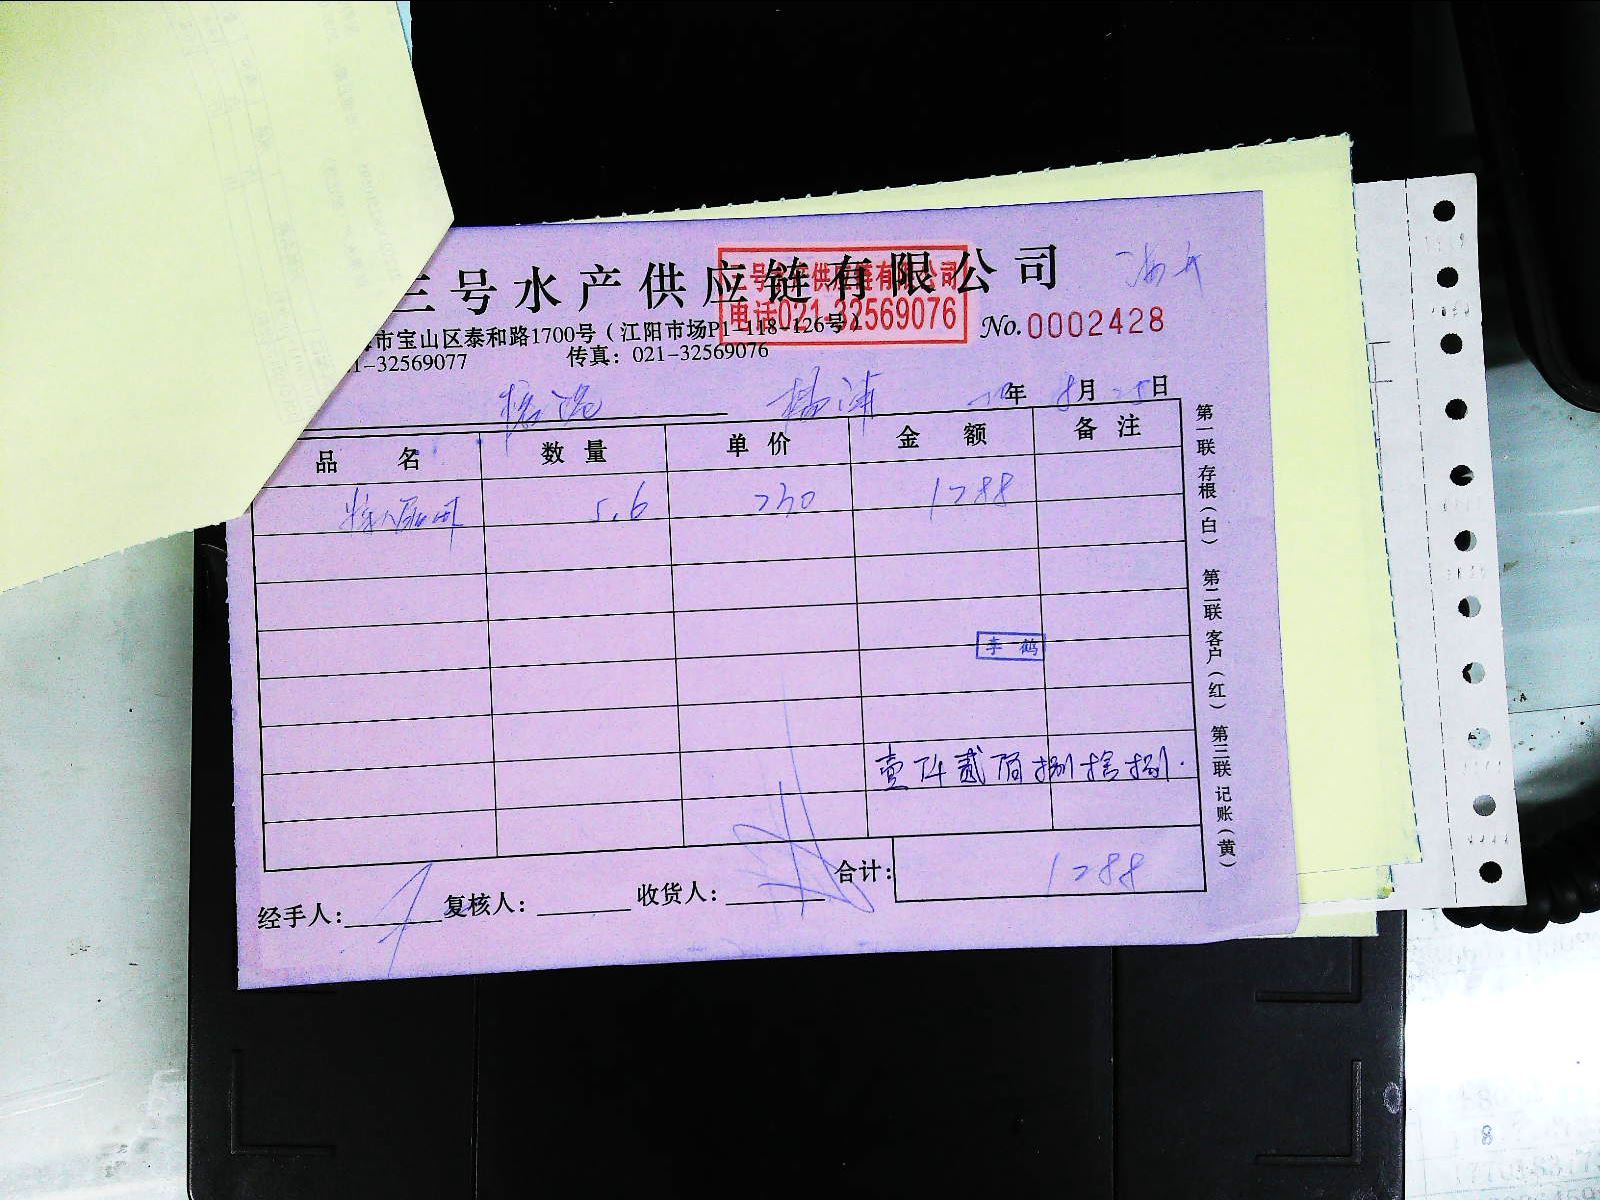 三号水产供应链有限公司
三号水产供应链有限公司
电话021-32569076
市宝山区泰和路1700号（江阳市场P1-118-126号）
No.0002428
1-32569077 传真：021-32569076
杨浦 年 8月 25日
品名 数量 单价 金额 备注
5.6 230 1288
李 鹤
壹仟贰佰捌拾捌.
合计： 1288
经手人： 复核人： 收货人：
第一联 存根（白） 第二联 客户（红） 第三联 记账（黄）
8